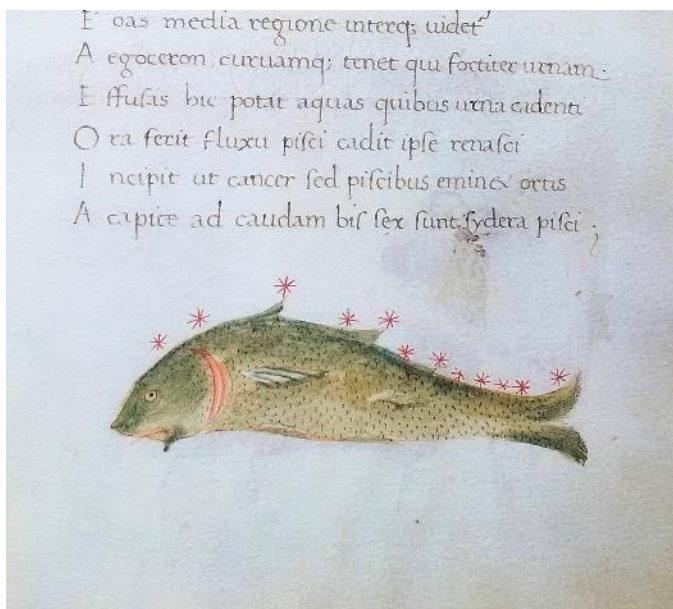 E oas media regione interq; uidet᷑
A egoceron curuamq; tenet qui fortiter urnam.
E ffuſas hic potat aquas quibus urna cadenti
O ra ferit fluxu piſci cadit ipſe renaſci
I ncipit ut cancer ſed piſcibus eminex ortis
A capite ad caudam biſ ſex ſunt ſydera piſci ;